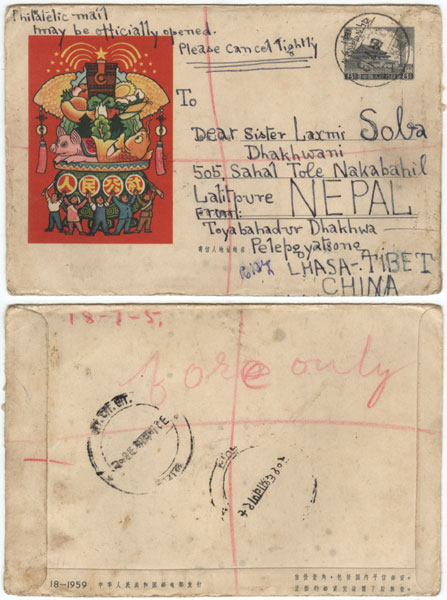 Philatelic mail
may be officially opened.
Please Cancel lightly
To
Dear Sister Laxmi Soba
Dhakhwani
505 Sahal Tole Nakabahil
Lalitpure NEPAL
From:
Toyabahadur Dhakhwa
Pelepgyatsong
LHASA-TIBET
CHINA
人民公社
寄信人地址姓名
18-7-5,
fore only
18-1959 中华人民共和国邮电部发行